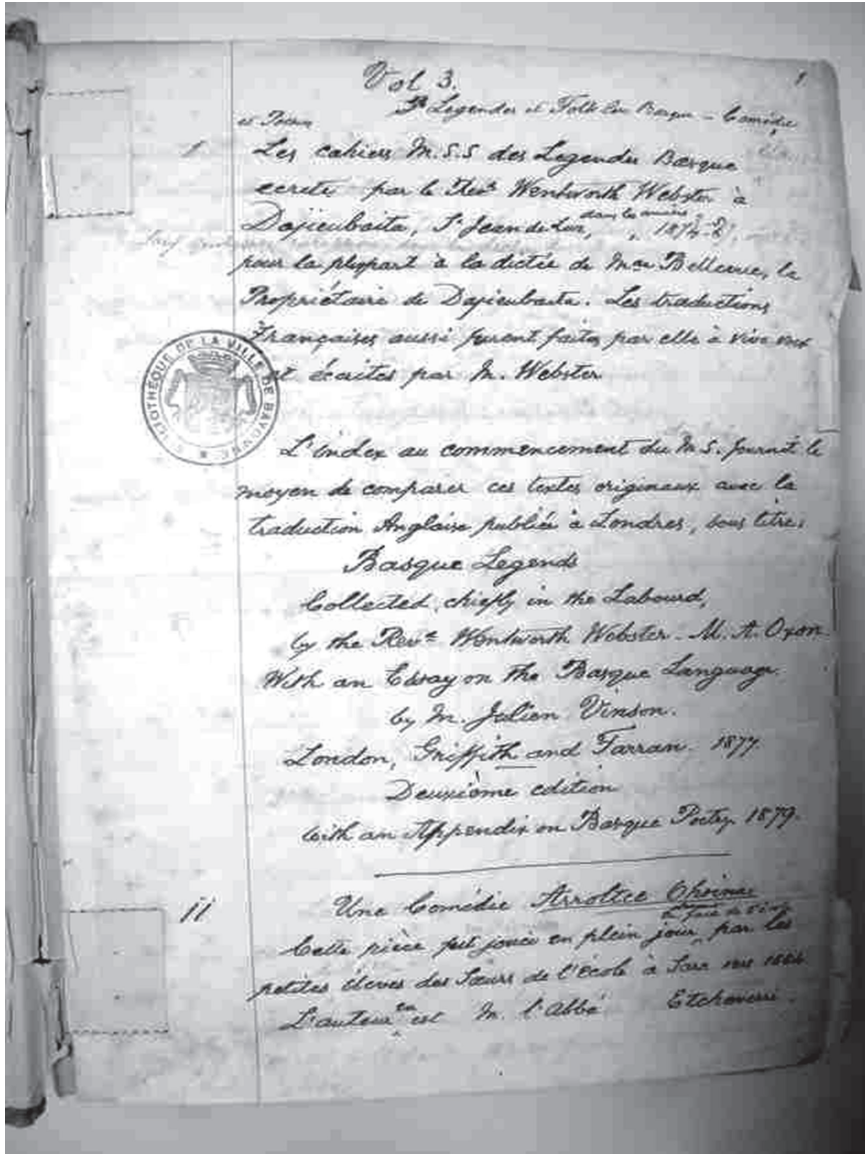 Vol 3.
1
Legendes et Folk Lore Basque — Comédie
et Poème
1
Les cahiers M.S.S des Legendes Basque
ecrite par le Revd Wentworth Webster à
Dajieubaita, St Jean de Luz, dans les années 1874-
pour la plupart à la dictée de Mme Bellevue, la
Propriétaire de Dajieubaita. Les traductions
Françaises aussi furent faites par elle à vive voix
et écrites par M. Webster
BIBLIOTHÈQUE DE LA VILLE DE BAYONNE
L'index au commencement du M.S. fournit le
moyen de comparer ces textes originaux avec la
traduction Anglaise publiée à Londres, sous titre,
Basque Legends
Collected, chiefly in the Labourd,
by the Revd Wentworth Webster - M. A. Oxon.
With an Essay on the Basque Language.
by M. Julien Vinson.
London, Griffith and Farran. 1877
Deuxième edition
with an Appendix on Basque Poetry 1879.
ii
Une Comédie Arroltce
Cette pièce fut jouée en plein jour, par les
petites élèves des Sœurs de l'école à Sare vers
L'auteur en est M. l'Abbé Etcheverri.